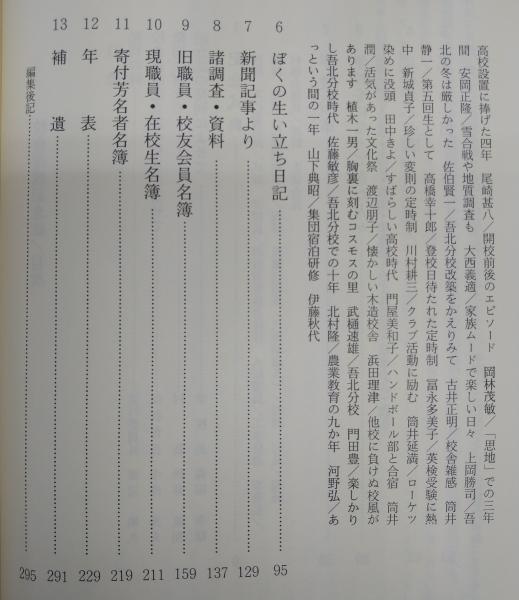 高校設置に捧げた四年　尾崎甚八／開校前後のエピソード　岡林茂敏／「思地」での三年
間　安岡正隆／雪合戦や地質調査も　大西義適／家族ムードで楽しい日々　上岡勝司／吾
北の冬は厳しかった　佐伯賢一／吾北分校改築をかえりみて　古井正明／校舎雑感　筒井
静一／第五回生として　高橋幸十郎／登校日待たれた定時制　冨永多美子／英検受験に熱
中　新城貞子／珍しい変則の定時制　川村耕三／クラブ活動に励む　筒井延満／ローケツ
染めに没頭　田中きよ／すばらしい高校時代　門屋美和子／ハンドボール部と合宿　筒井
潤／活気があった文化祭　渡辺朋子／懐かしい木造校舎　浜田理津／他校に負けぬ校風が
あります　植木一男／胸裏に刻むコスモスの里　武樋速雄／吾北分校　門田豊／楽しかり
し吾北分校時代　佐藤敏彦／吾北分校での十年　北村隆／農業教育の九か年　河野弘／あ
っという間の一年　山下典昭／集団宿泊研修　伊藤秋代
6　ぼくの生い立ち日記……………95
7　新聞記事より……………129
8　諸調査・資料……………137
9　旧職員・校友会員名簿……………159
10　現職員・在校生名簿……………211
11　寄付芳名者名簿……………219
12　年　表……………229
13　補　遺……………291
編集後記……………295